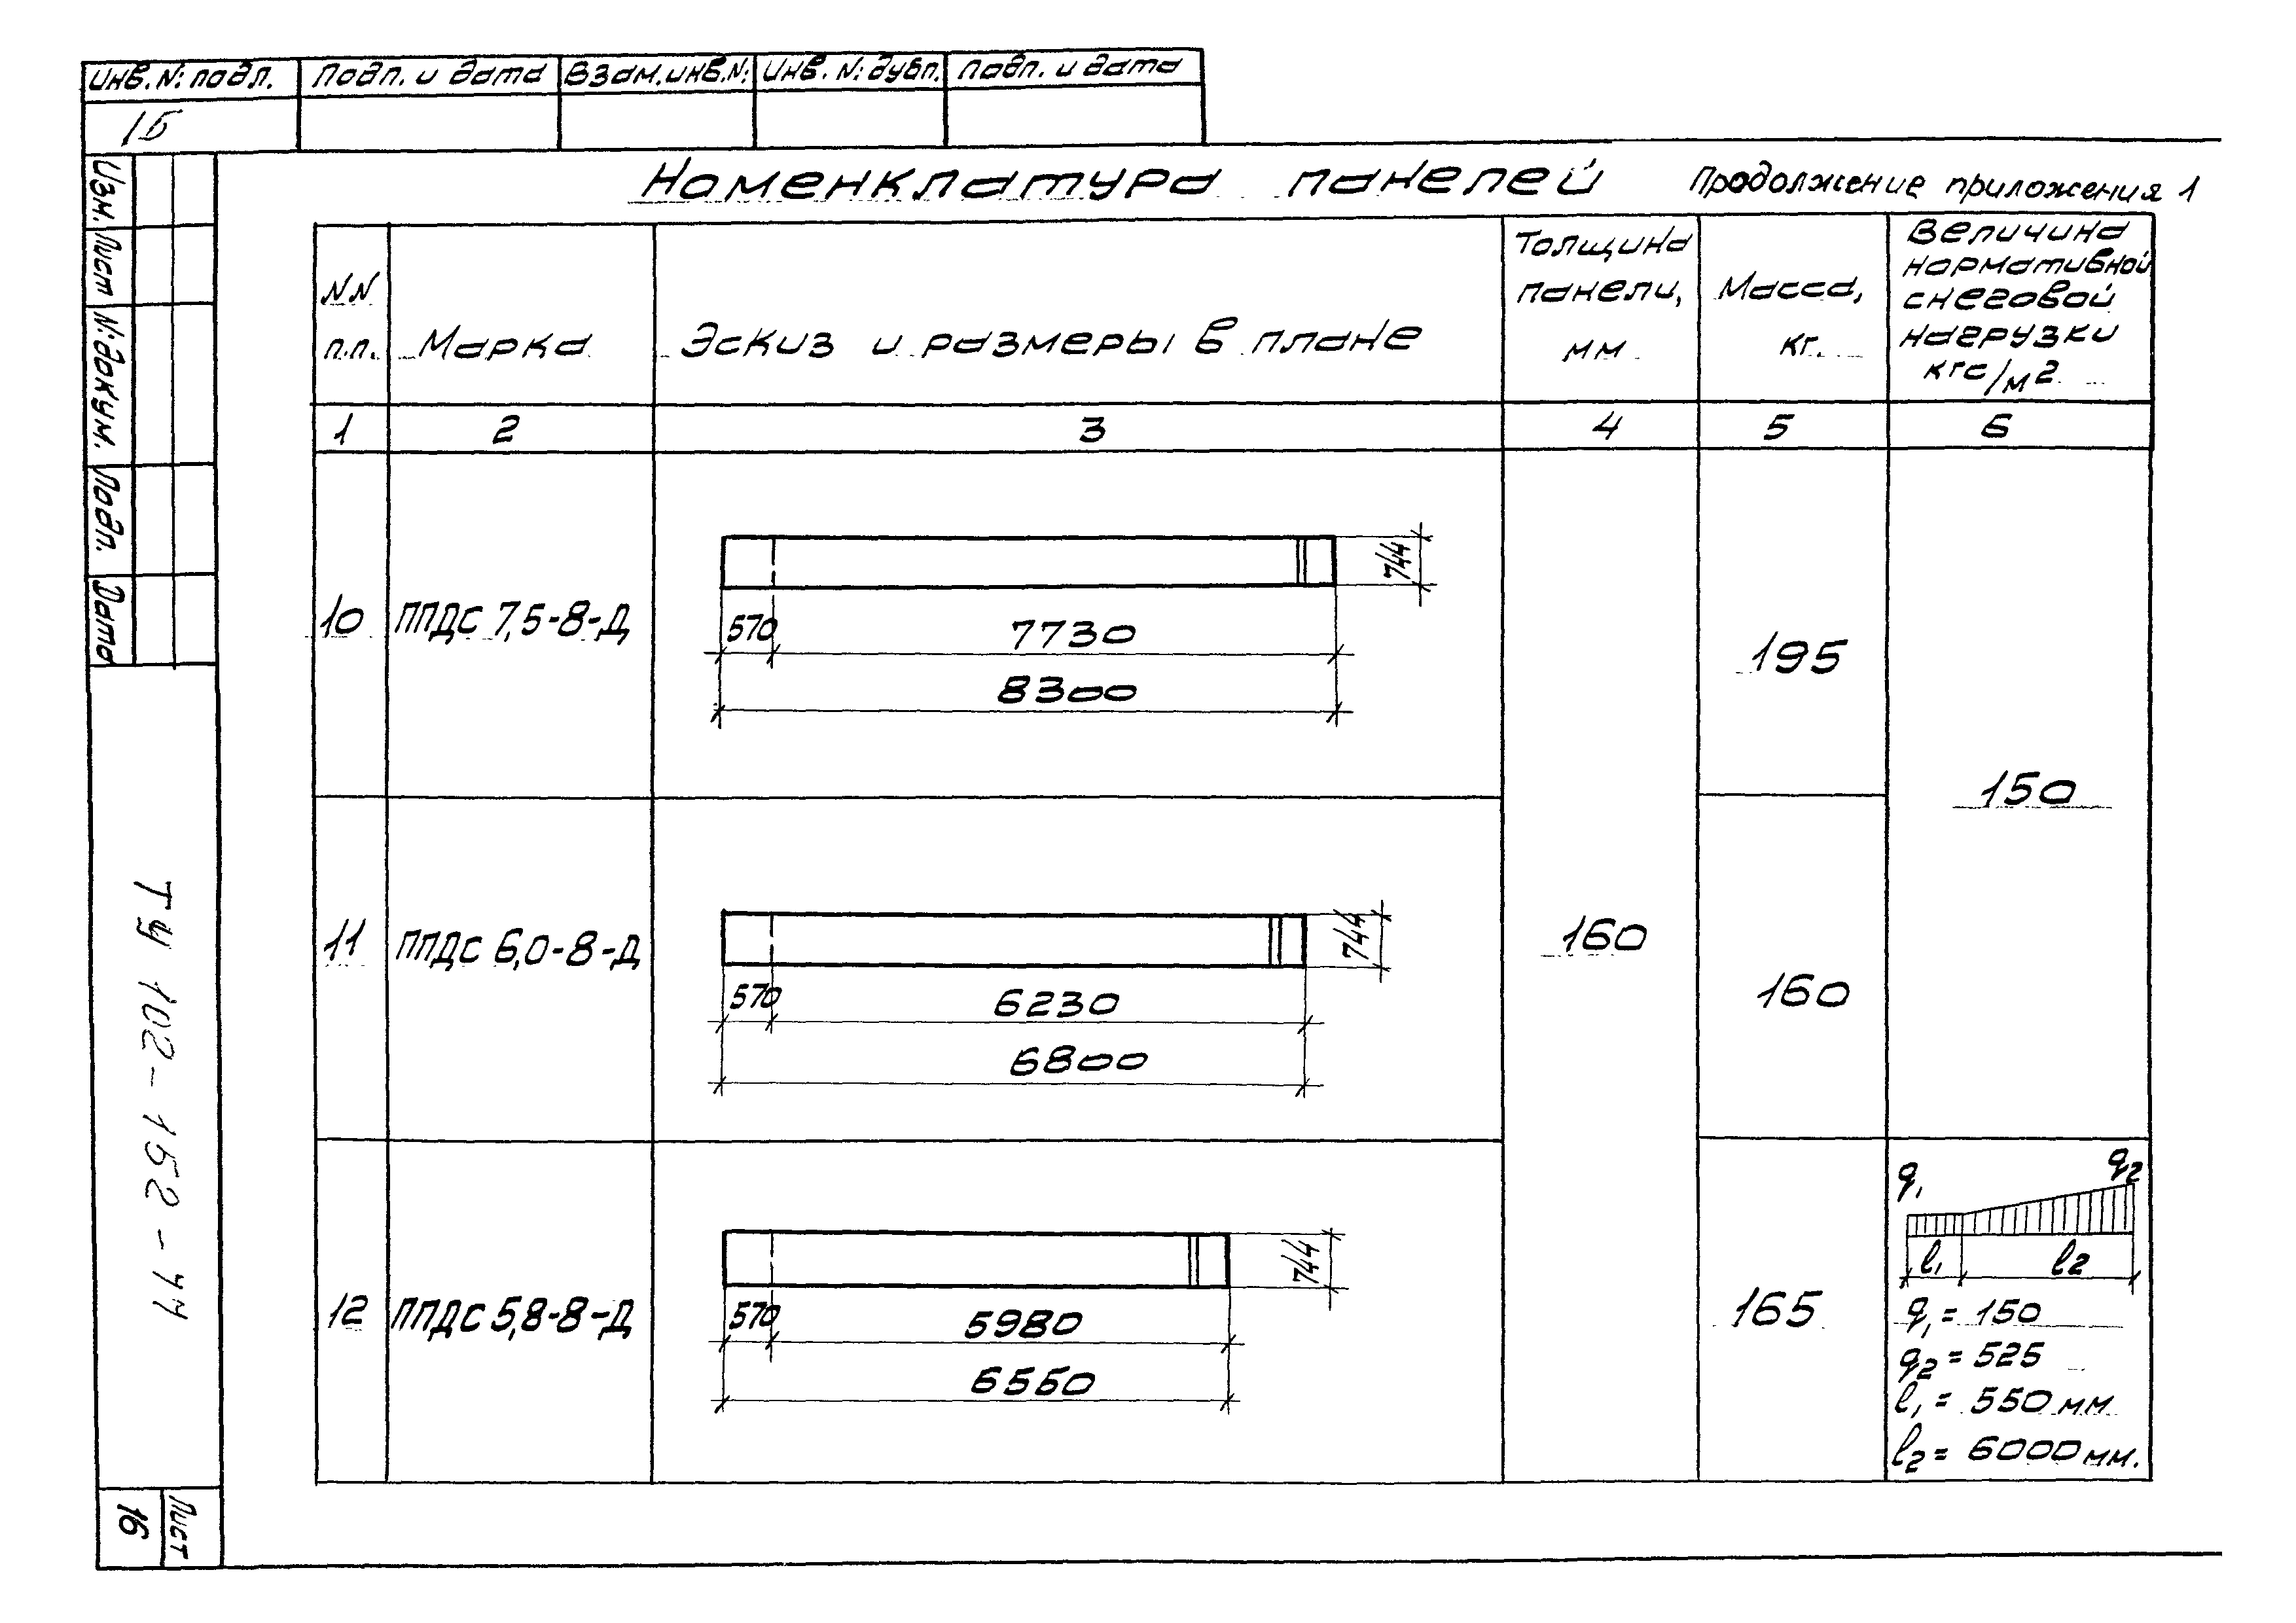 Инв. N: подл. Подп. и дата Взам. инв. N: Инв. N: дубл. Подп. и дата
1Б
Изм. Лист N: докум. Подп. Дата
ТУ 102-152-77
Лист
16
Номенклатура панелей Продолжение приложения 1
NN
п.п.
Марка
Эскиз и размеры в плане
Толщина
панели,
мм
Масса,
кг.
Величина
нормативной
снеговой
нагрузки
кгс/м2
1 2 3 4 5 6
10 ППДС 7,5-8-Д
744
570 7730
8300
195
150
11 ППДС 6,0-8-Д
744
570 6230
6800
160
160
12 ППДС 5,8-8-Д
744
570 5980
6550
165
q1 q2
l1 l2
q1 = 150
q2 = 525
l1 = 550 мм
l2 = 6000 мм.